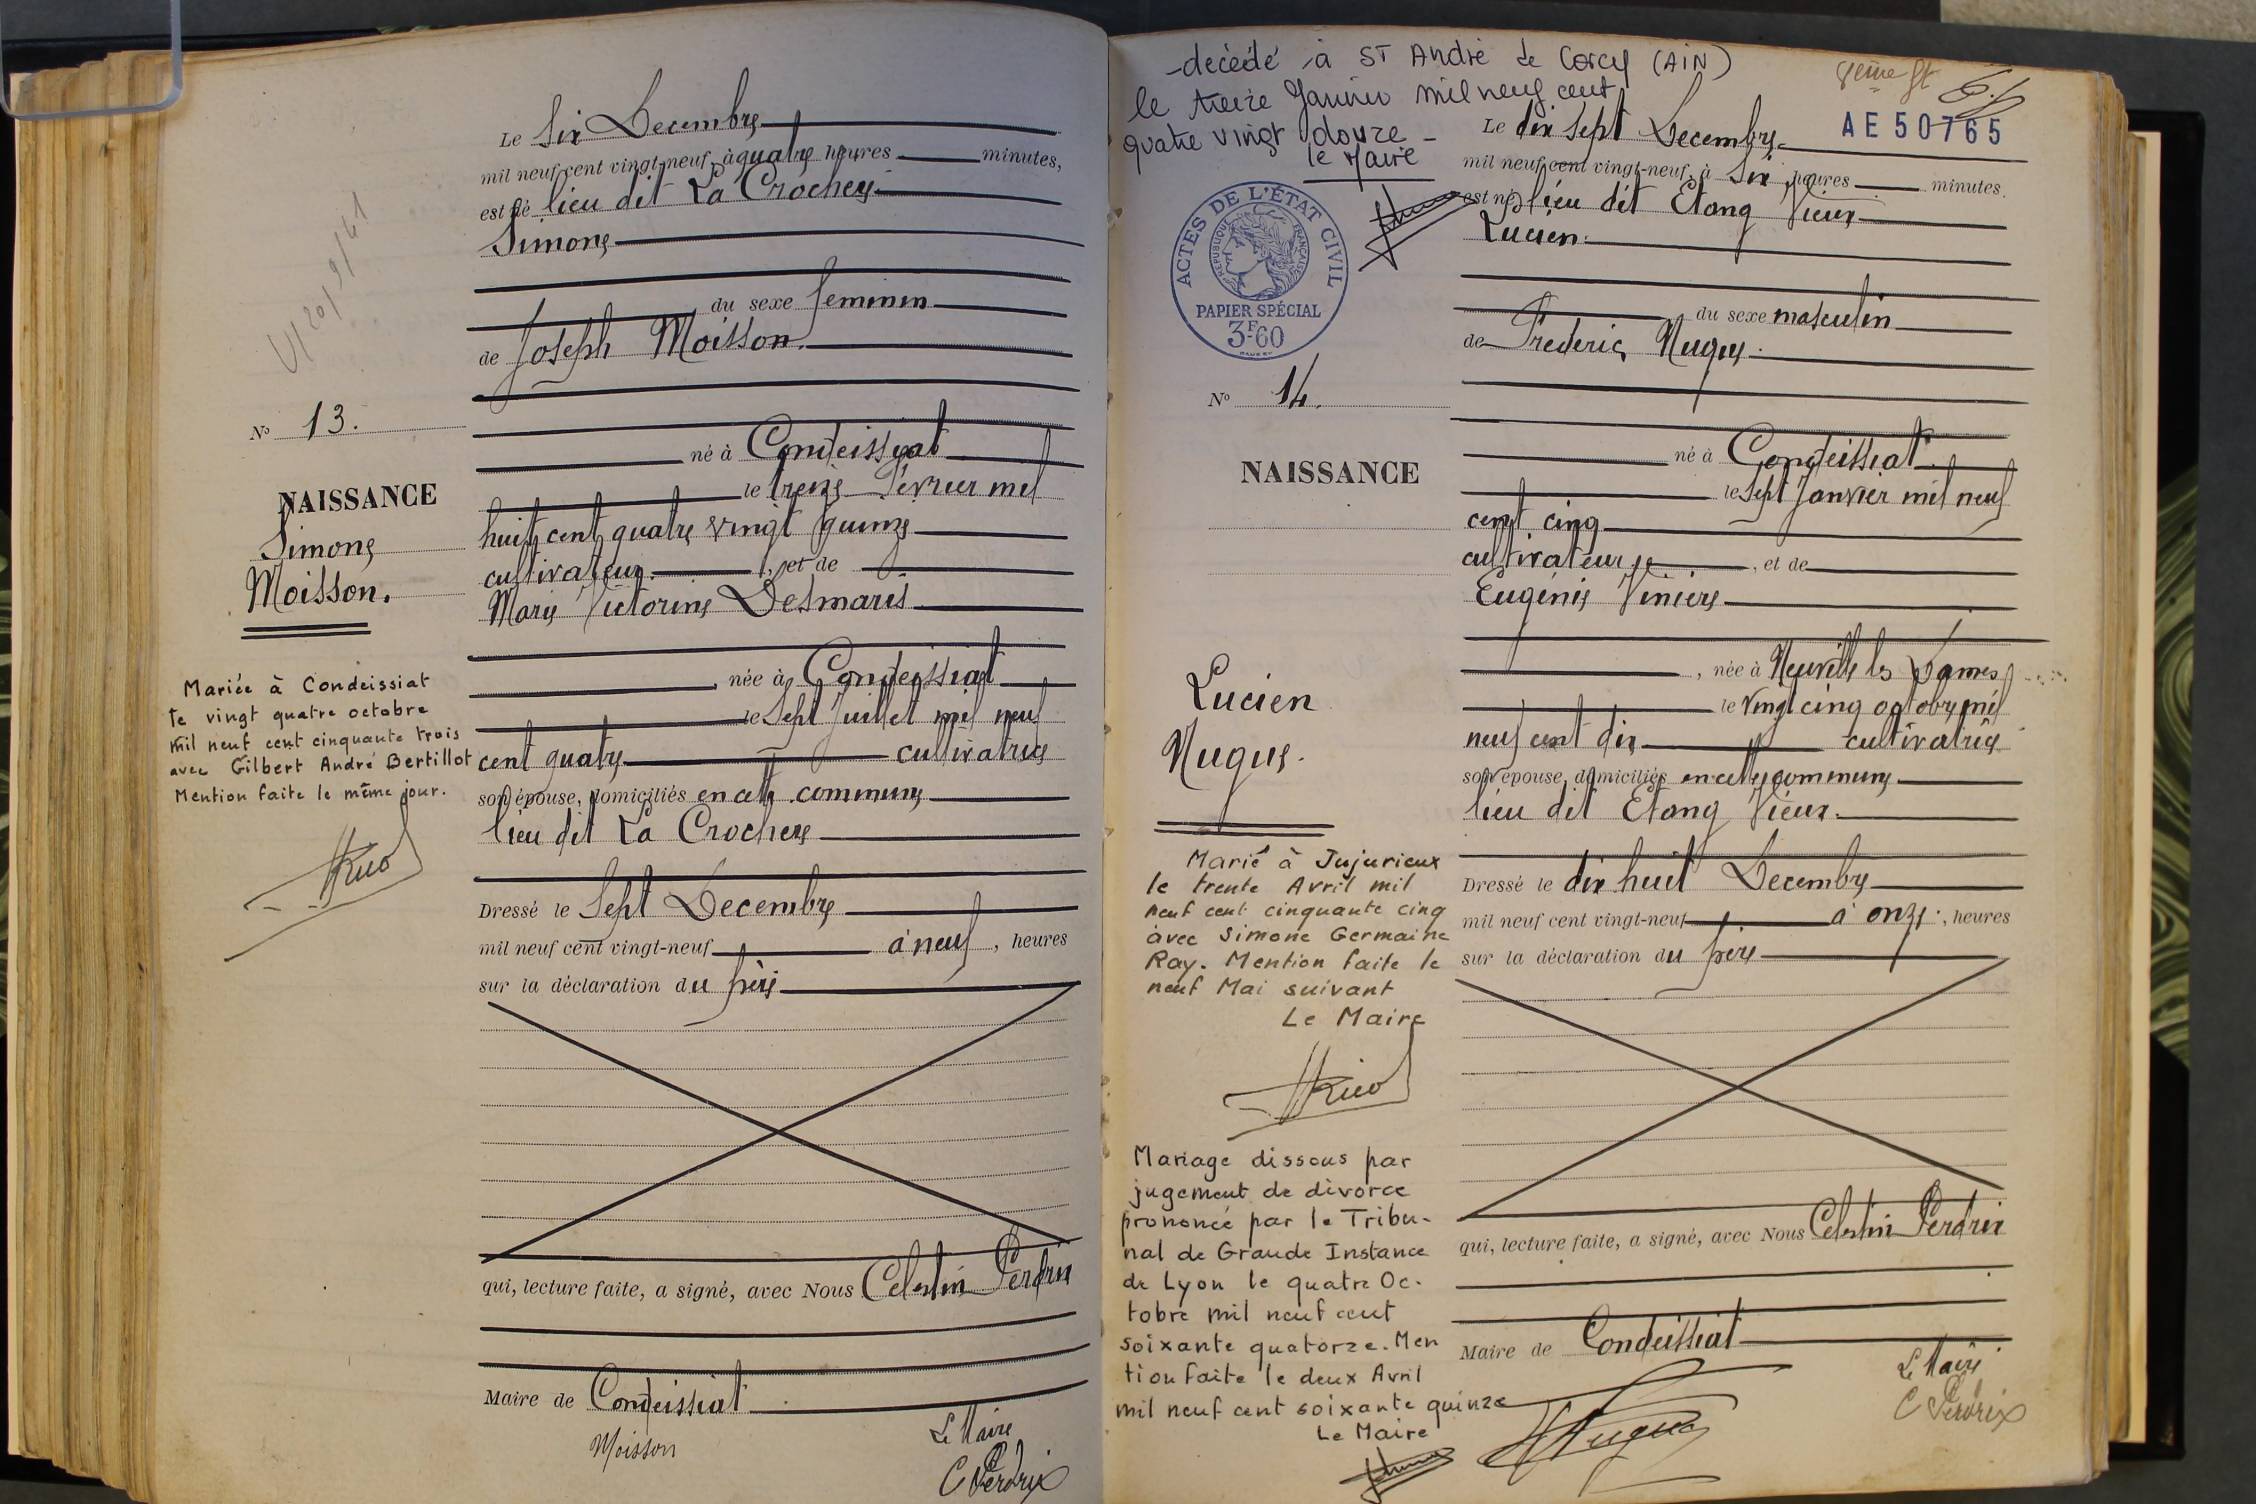 Le six Decembre
mil neuf cent vingt-neuf, à quatre heures minutes,
est né lieu dit La Crochere
Simone
du sexe feminin
de Joseph Moisson.
né à Condeissiat
le treize Février mil
huit cent quatre vingt quinze
cultivateur, et de
Marie Victorine Desmaris
, née à Condeissiat
le Sept Juillet mil neuf
cent quatre cultivatrice
son épouse, domiciliés en cette commune
lieu dit La Crochere
Dressé le Sept Decembre
mil neuf cent vingt-neuf à neuf, heures
sur la déclaration du père
qui, lecture faite, a signé, avec Nous Celestin Perdrix
Maire de Condeissiat
Moisson
Le Maire
C Perdrix
No 13.
NAISSANCE
Simone
Moisson.
Mariée à Condeissiat
le vingt quatre octobre
mil neuf cent cinquante trois
avec Gilbert André Bertillot
Mention faite le même jour.
-decédé à ST André de Corcy (AIN)
le treize Janvier mil neuf cent
quatre vingt douze -
le Maire
8ème
AE 50765
ACTES DE L'ÉTAT CIVIL
RÉPUBLIQUE FRANÇAISE
PAPIER SPÉCIAL
3F60
No 14.
NAISSANCE
Lucien
Nugue.
Marié à Jujurieux
le trente Avril mil
neuf cent cinquante cinq
avec Simone Germaine
Ray. Mention faite le
neuf Mai suivant
Le Maire
Mariage dissous par
jugement de divorce
prononcé par le Tribu-
nal de Grande Instance
de Lyon le quatre Oc-
tobre mil neuf cent
soixante quatorze. Men
tion faite le deux Avril
mil neuf cent soixante quinze
Le Maire
Le dix sept Decembre
mil neuf cent vingt-neuf, à six heures minutes
est né lieu dit Etang Vieux
Lucien.
du sexe masculin
de Frederic Nugue.
né à Condeissiat.
le Sept Janvier mil neuf
cent cinq
cultivateur, et de
Eugénie Viniere
, née à Neuville les Dames
le vingt cinq octobre mil
neuf cent dix cultivatrice
son épouse, domiciliés en cette commune
lieu dit Etang Vieux.
Dressé le dix huit Decembre
mil neuf cent vingt-neuf à onze, heures
sur la déclaration du père
qui, lecture faite, a signé, avec Nous Celestin Perdrix
Maire de Condeissiat
Nugue
Le Maire
C Perdrix